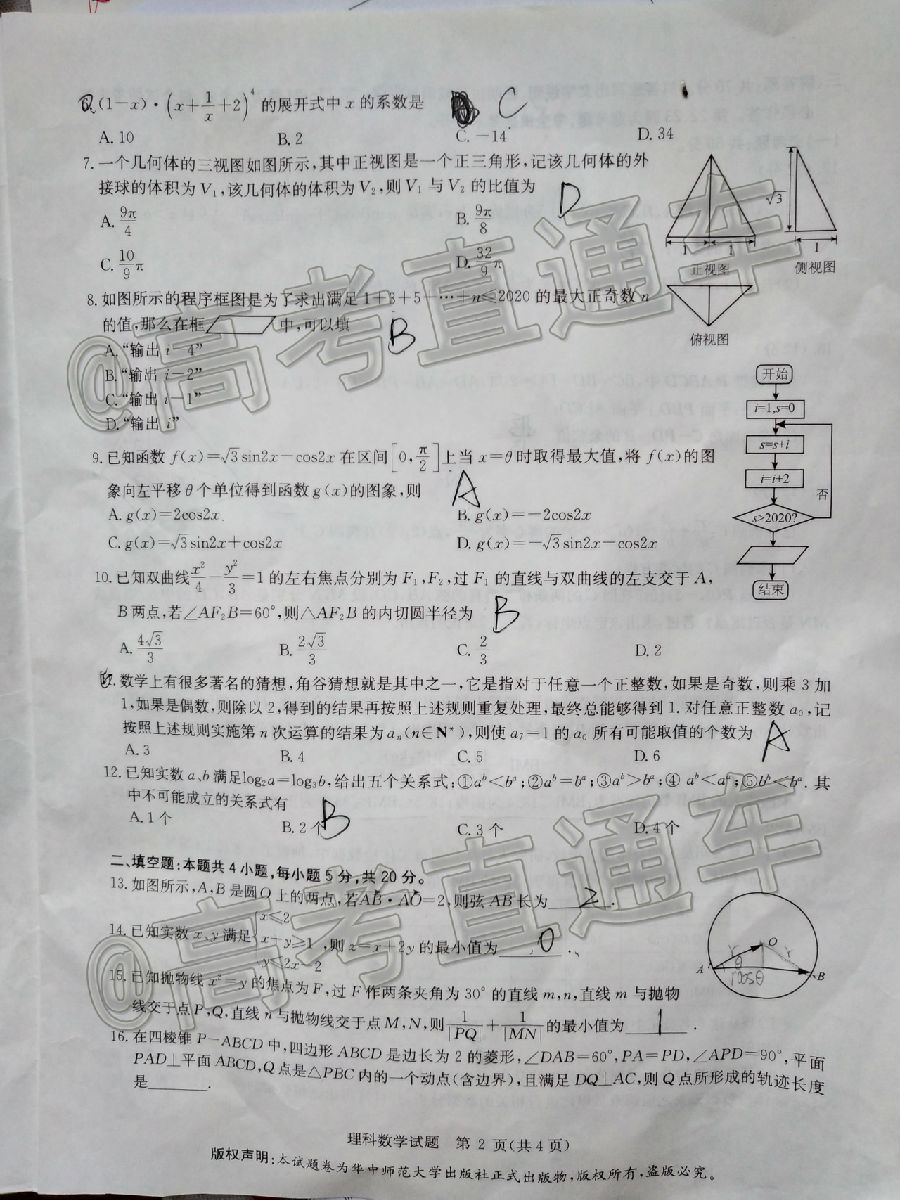 (1-x)·(x+1/x+2)^4 的展开式中 x 的系数是 C
A. 10 B. 2 C. -14 D. 34
7. 一个几何体的三视图如图所示,其中正视图是一个正三角形,记该几何体的外
接球的体积为 V₁,该几何体的体积为 V₂,则 V₁ 与 V₂ 的比值为 D
A. 9π/4 B. 9π/8
C. 10/9 π D. 32/9 π
√3
1 1 1
正视图 侧视图
俯视图
8. 如图所示的程序框图是为了求出满足 1+3+5+…+n≤2020 的最大正奇数 n
的值,那么在框 中,可以填 B
A.“输出 i-4”
B.“输出 i-2”
C.“输出 i-1”
D.“输出 i”
开始
i=1,s=0
s=s+i
i=i+2
否
s>2020?
结束
9. 已知函数 f(x)=√3sin2x-cos2x 在区间[0,π/2]上当 x=θ 时取得最大值,将 f(x)的图
象向左平移 θ 个单位得到函数 g(x)的图象,则 A
A. g(x)=2cos2x B. g(x)=-2cos2x
C. g(x)=√3sin2x+cos2x D. g(x)=-√3sin2x-cos2x
10. 已知双曲线 x²/4-y²/3=1 的左右焦点分别为 F₁,F₂,过 F₁ 的直线与双曲线的左支交于 A,
B 两点,若∠AF₂B=60°,则△AF₂B 的内切圆半径为 B
A. 4√3/3 B. 2√3/3 C. 2/3 D. 2
数学上有很多著名的猜想,角谷猜想就是其中之一,它是指对于任意一个正整数,如果是奇数,则乘 3 加
1,如果是偶数,则除以 2,得到的结果再按照上述规则重复处理,最终总能够得到 1. 对任意正整数 a₀,记
按照上述规则实施第 n 次运算的结果为 aₙ(n∈N*),则使 a₇=1 的 a₀ 所有可能取值的个数为 A
A. 3 B. 4 C. 5 D. 6
12. 已知实数 a,b 满足log₂a=log₃b,给出五个关系式:①a^b<b^a;②a^b=b^a;③a^b>b^a;④ a^b<a^a;⑤b^b<b^a. 其
中不可能成立的关系式有
A. 1 个 B. 2 个 C. 3 个 D. 4 个
B
二、填空题:本题共 4 小题,每小题 5 分,共 20 分。
13. 如图所示,A、B 是圆 O 上的两点,若AB·AO=2,则弦 AB 长为 2 .
14. 已知实数 x、y 满足 x≤2 x-y≥1 y≤2x-2 ,则 z=x+2y 的最小值为 0 .
O
A
B
r
θ
rcosθ
15. 已知抛物线 x²=y 的焦点为 F,过 F 作两条夹角为 30° 的直线 m,n,直线 m 与抛物
线交于点 P,Q,直线 n 与抛物线交于点 M,N,则 1/|PQ| + 1/|MN| 的最小值为 1 .
16. 在四棱锥 P-ABCD 中,四边形 ABCD 是边长为 2 的菱形,∠DAB=60°,PA=PD,∠APD=90°,平面
PAD⊥平面 ABCD,Q 点是△PBC 内的一个动点(含边界),且满足 DQ⊥AC,则 Q 点所形成的轨迹长度
是 .
理科数学试题 第 2 页(共 4 页)
版权声明:本试题卷为华中师范大学出版社正式出版物,版权所有,盗版必究。
@高考直通车
@高考直通车